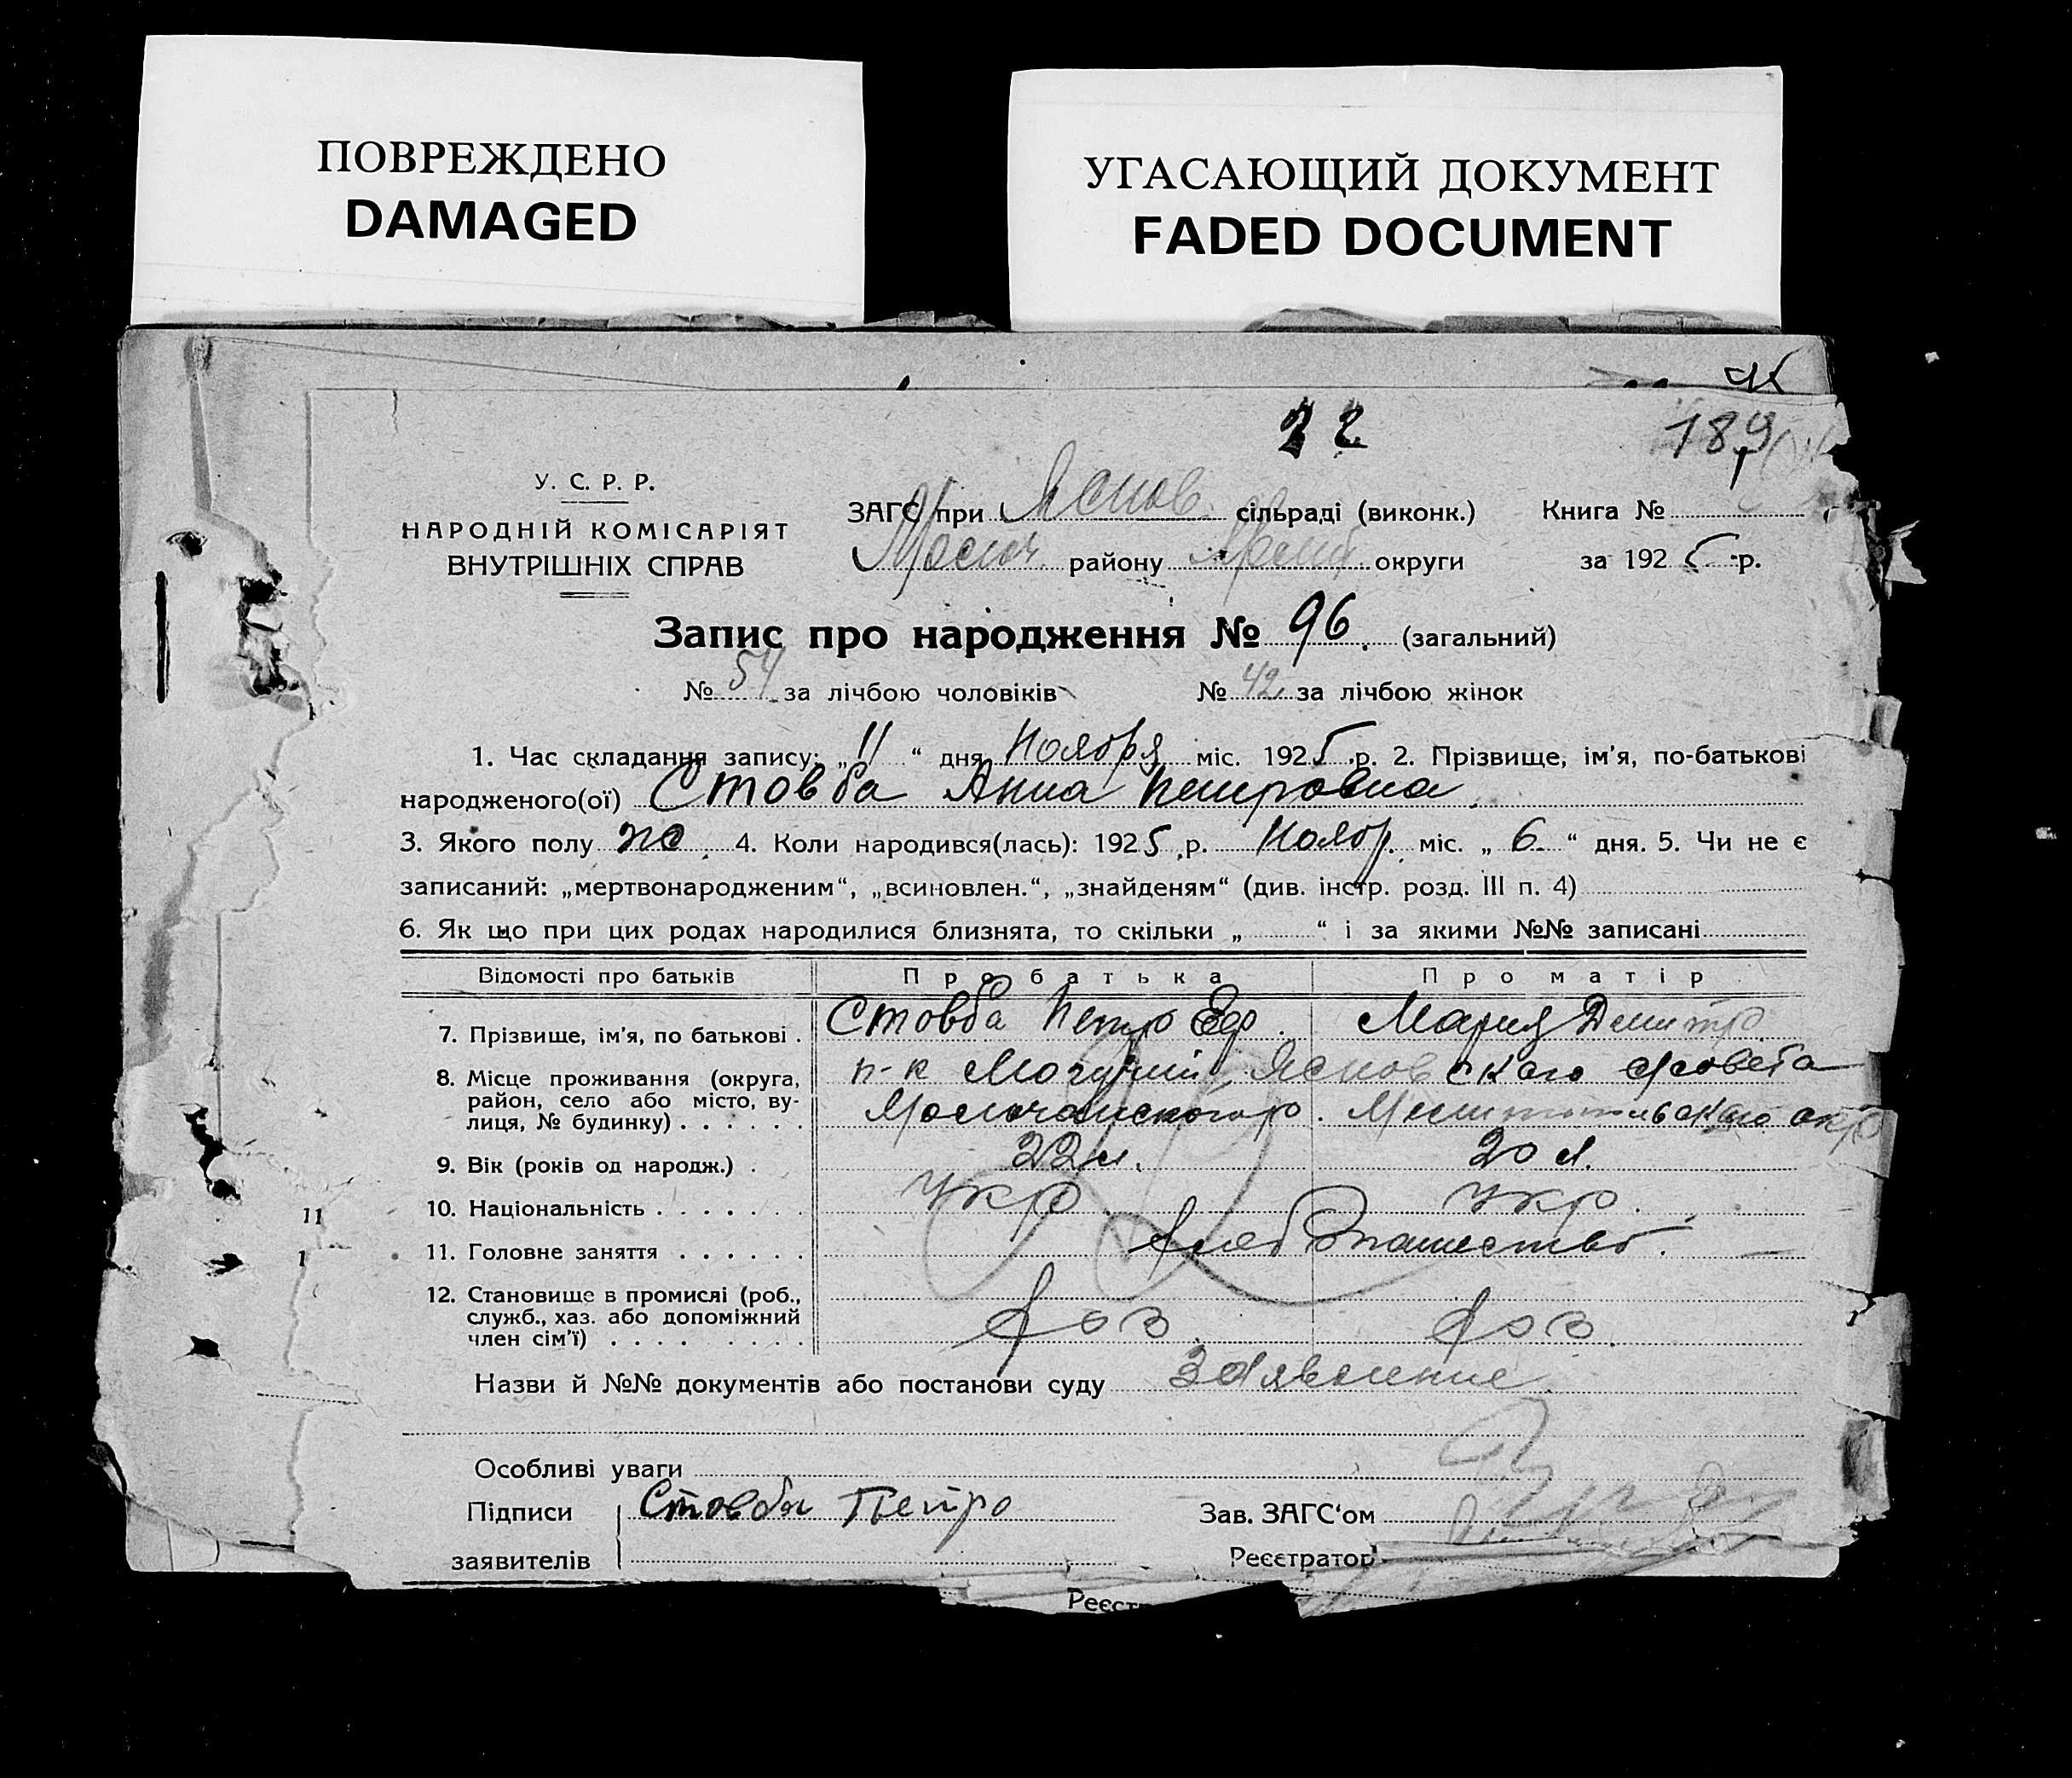 ПОВРЕЖДЕНО
DAMAGED
УГАСАЮЩИЙ ДОКУМЕНТ
FADED DOCUMENT
22
189
У. С. Р. Р.
НАРОДНІЙ КОМІСАРІЯТ
ВНУТРІШНІХ СПРАВ
ЗАГС при Яснов. сільраді (виконк.)
Молоч. району Мелит округи
Книга №
за 1925 р.
Запис про народження № 96. (загальний)
№ 54 за лічбою чоловіків № 42 за лічбою жінок
1. Час складання запису: „11“ дня Ноября міс. 1925 р. 2. Прізвище, ім'я, по-батькові
народженого(ої) Стовба Анна Петровна.
3. Якого полу ж. 4. Коли народився(лась): 1925 р. Ноябр. міс. „6“ дня. 5. Чи не є
записаний: „мертвонародженим“, „всиновлен.“, „знайденям“ (див. інстр. розд. III п. 4)
6. Як що при цих родах народилися близнята, то скільки „ “ і за якими №№ записані
Відомості про батьків Про батька Про матір
7. Прізвище, ім'я, по батькові . Стовба Петро Еф. Мария Дмитр
8. Місце проживання (округа, район, село або місто, вулиця, № будинку) . . . . . . п-к Могучий Ясновского с/совета
Молочанского р. Мелитопольского окр
9. Вік (років од народж.) . 22 л. 20 л.
10. Національність . . . . . . . укр. укр.
11. Головне заняття . . . . . . хлебопашество.
12. Становище в промислі (роб.,
служб., хаз. або допоміжний
член сім'ї) . . . . . . . . . хоз. хоз.
Назви й №№ документів або постанови суду заявление.
Особливі уваги
Підписи Стовба Петро
заявителів
Зав. ЗАГС'ом
Реєстратор
Реєст
11
1